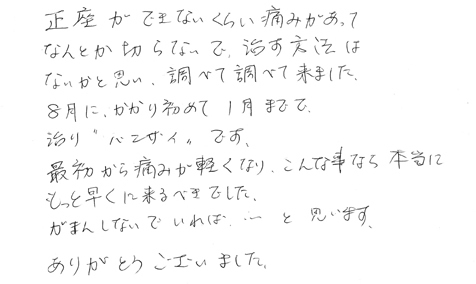 正座ができないくらい痛みがあって
なんとか切らないで、治す方法は
ないかと思い、調べて調べて来ました。
8月に、かかり初めて1月までで、
治り"バンザイ"です。
最初から痛みが軽くなり、こんな事なら本当に
もっと早くに来るべきでした。
がまんしないでいれば、… と思います。
ありがとうございました。